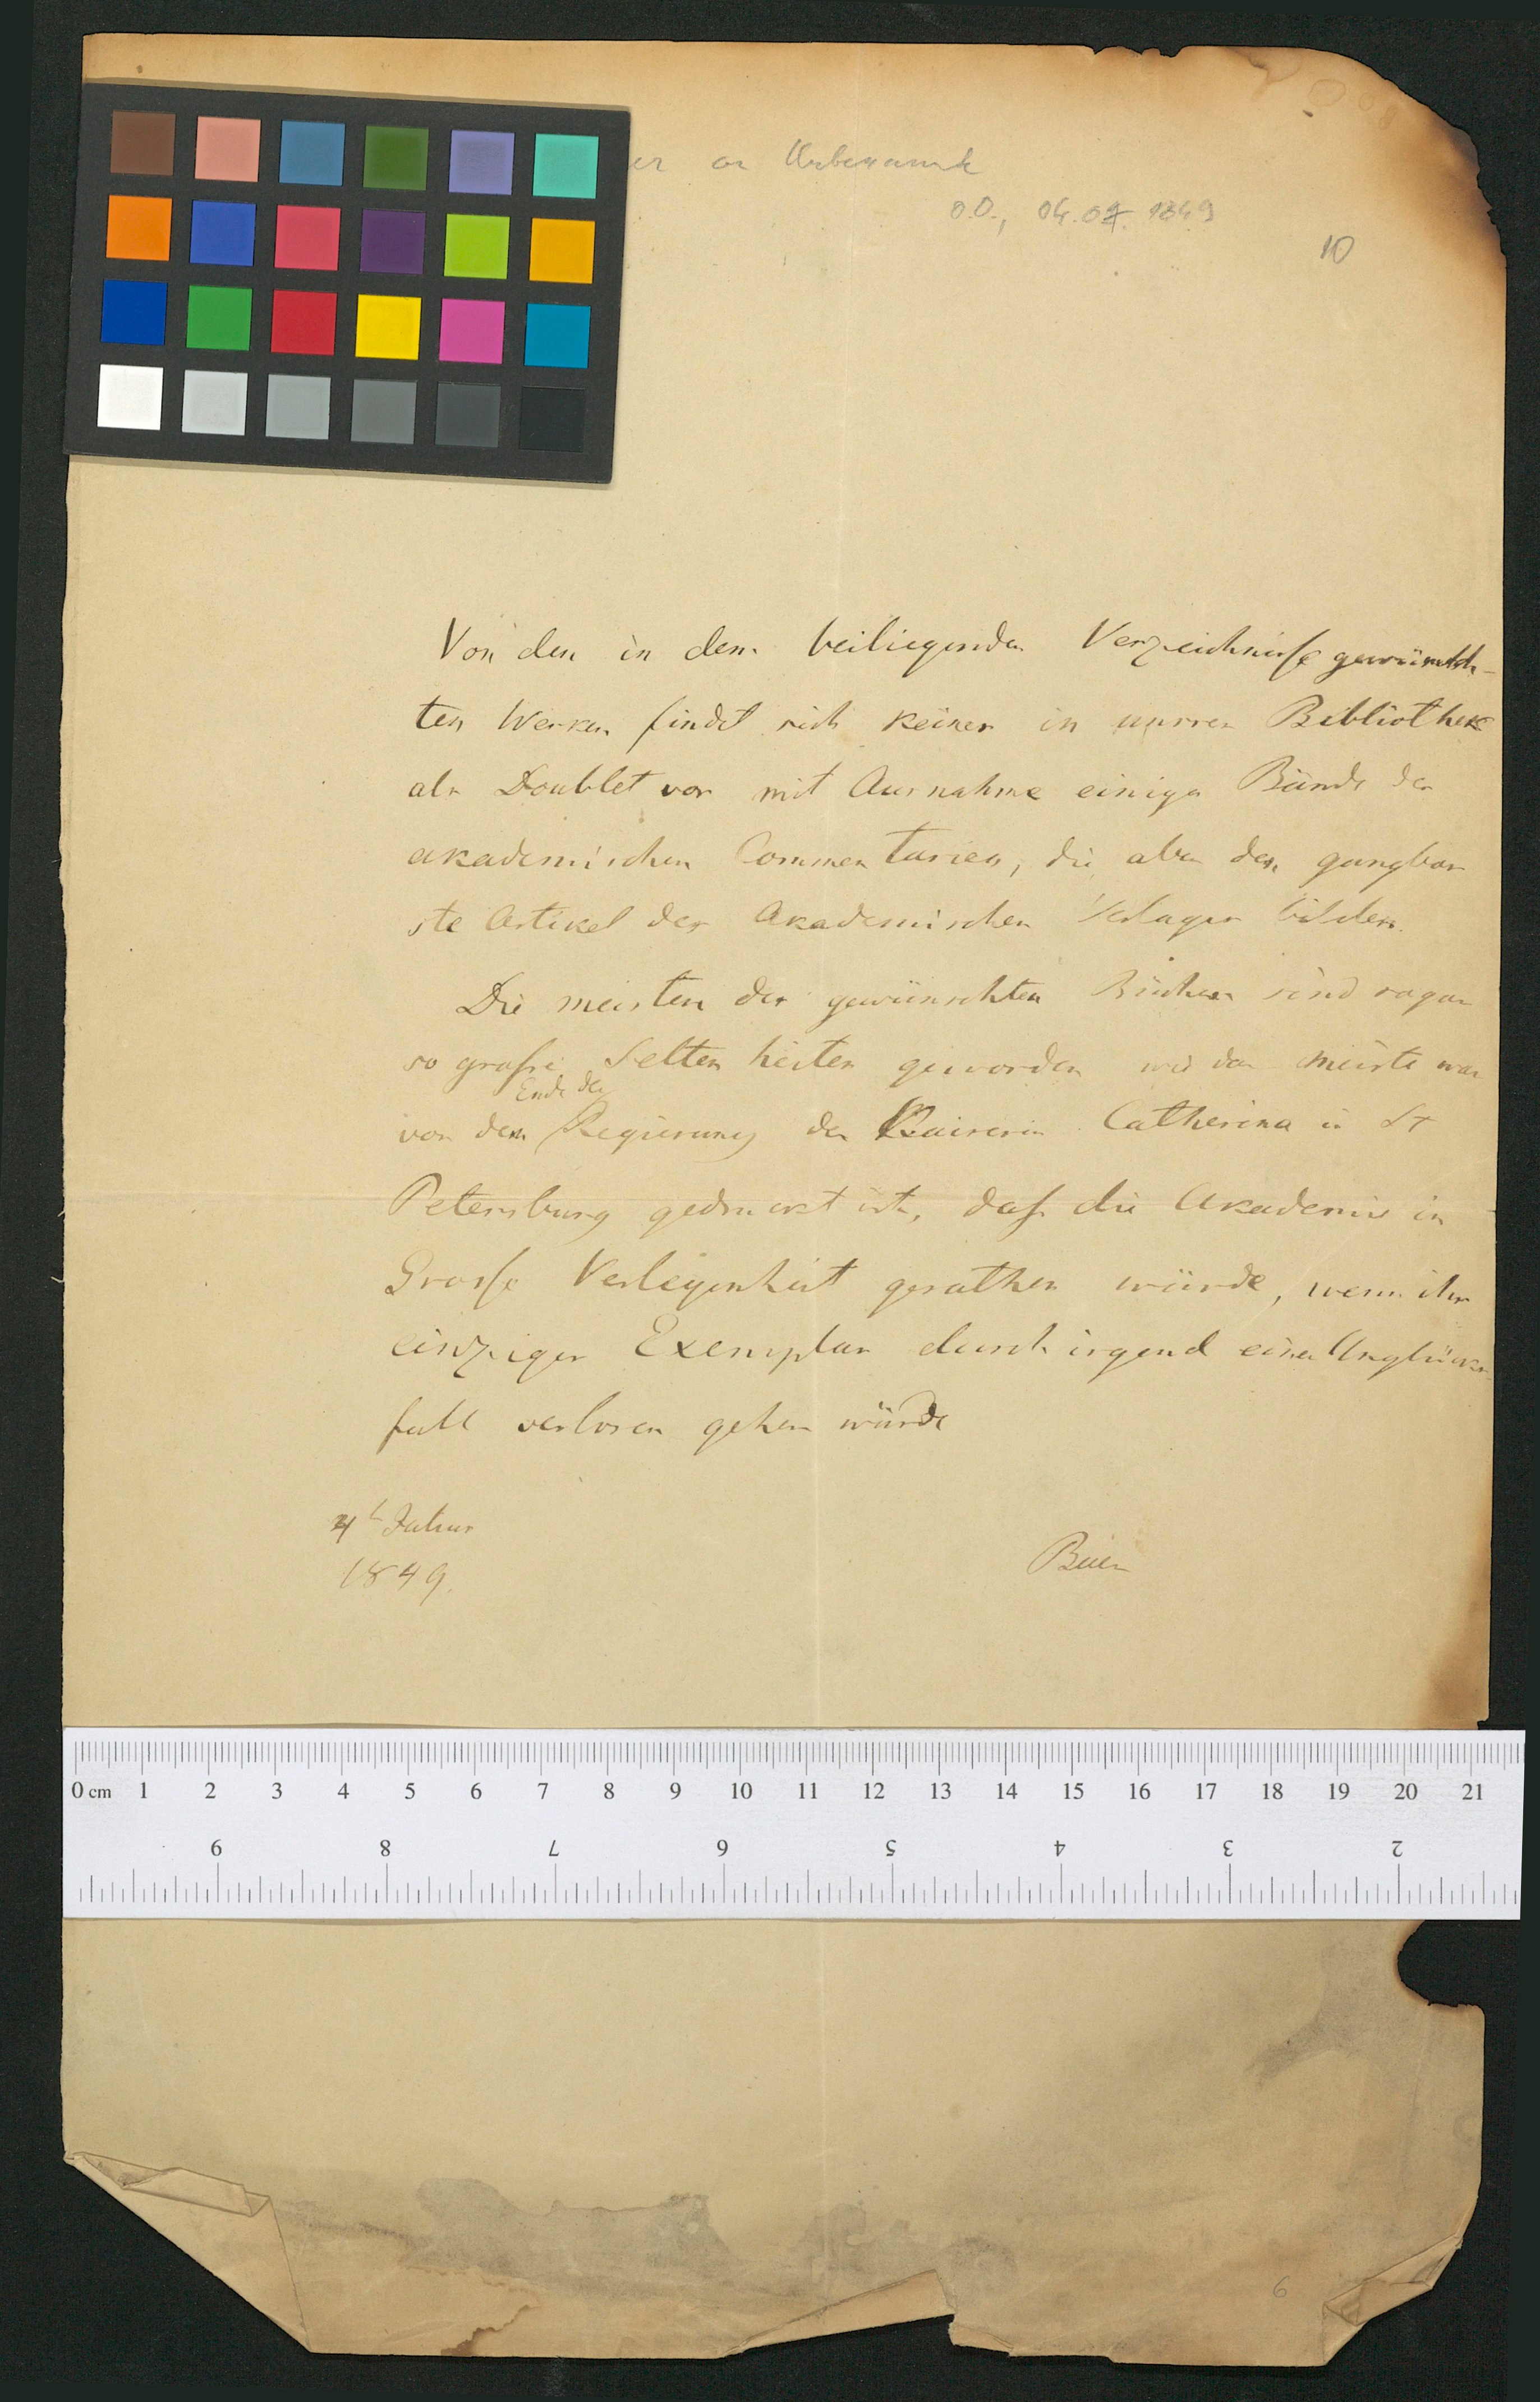 er an Unbekannt
o.O., 04.07.1849
10
Von den in dem beiliegenden Verzeichnisse gewünsch-
ten Werken findet sich keines in unsrer Bibliothek
als Doublet vor mit Ausnahme einiger Bände der
akademischen Commentarien, die aber den gangbar
ste Artikel des Akademischen Verlages bilden.
Die meisten der gewünschten Bücher sind sogar
so große Seltenheiten geworden wie das meiste was
Ende der
vor dem Regierung der Kaiserin Catherina in St
Petersburg gedruckt ist, daß die Akademie in
Grosse Verlegenheit gerathen würde, wenn ihr
einziges Exemplar durch irgend einen Unglücks
fall verloren gehen würde
4
1849.
Baer
0 cm 1 2 3 4 5 6 7 8 9 10 11 12 13 14 15 16 17 18 19 20 21
9 8 7 6 5 4 3 2
6